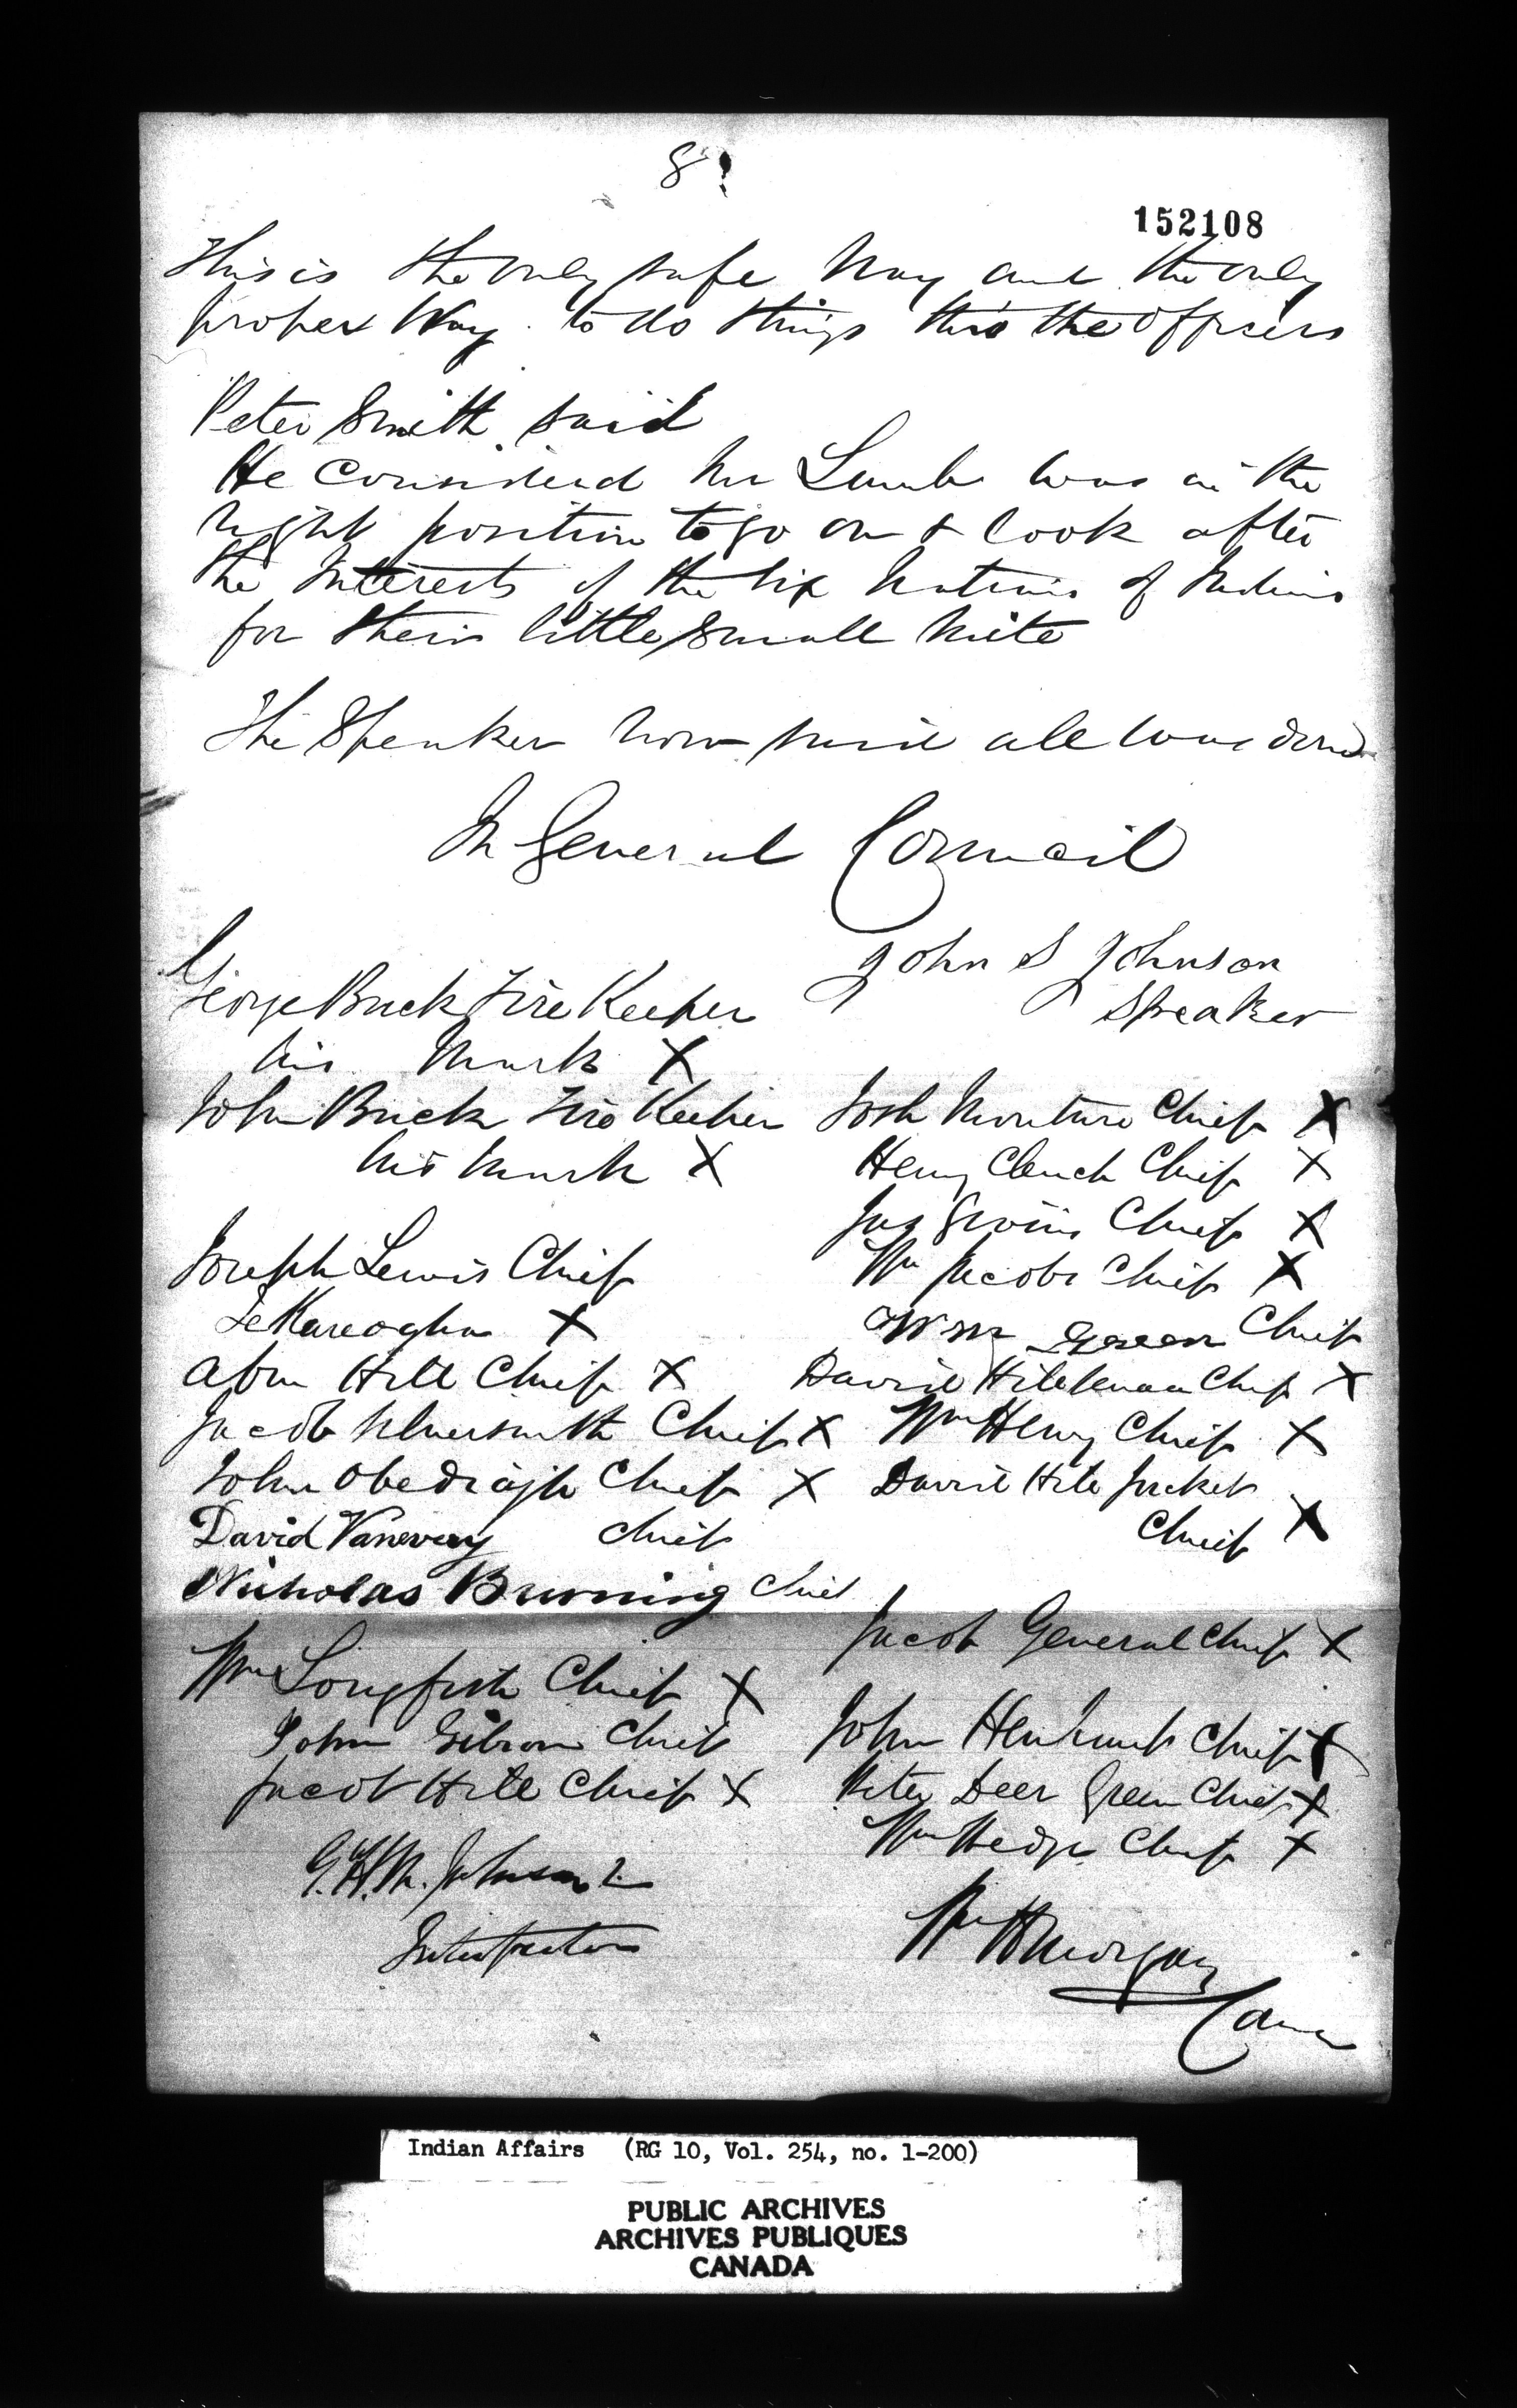 8
152108
This is the only safe Way and the only
proper Way to do things thro the officers
Peter Smith said
He Considered Mr Lamb was in the
right position to go on & look after
the Interests of the Six Nations of Indians
for their little small mite
The Speaker now said all was done
In General Council
John S Johnson
Speaker
George Buck Fire Keeper
his Mark X
John Buck Fire Keeper
his Mark X
Joseph Lewis Chief
X
Abm Hill Chief X
Jacob Silversmith Chief X
John Obediajh Chief X
David Vanevery Chief
Nicholas Burning Chief
Wm Longfish Chief X
John Gibson Chief
Jacob Hill Chief X
G.H.M. Johnson
Interpreter
Josh Monture Chief X
Henry Clench Chief X
Jas Chief X
Wm Jacobs Chief X
Wm Green Chief
David Chief X
Wm Henry Chief X
David Hill Jacket
Chief X
Jacob General Chief X
John Chief X
Peter Deer Green Chief X
Wm Hedge Chief X
Wm H Morgan
Indian Affairs (RG 10, Vol. 254, no. 1-200)
PUBLIC ARCHIVES
ARCHIVES PUBLIQUES
CANADA